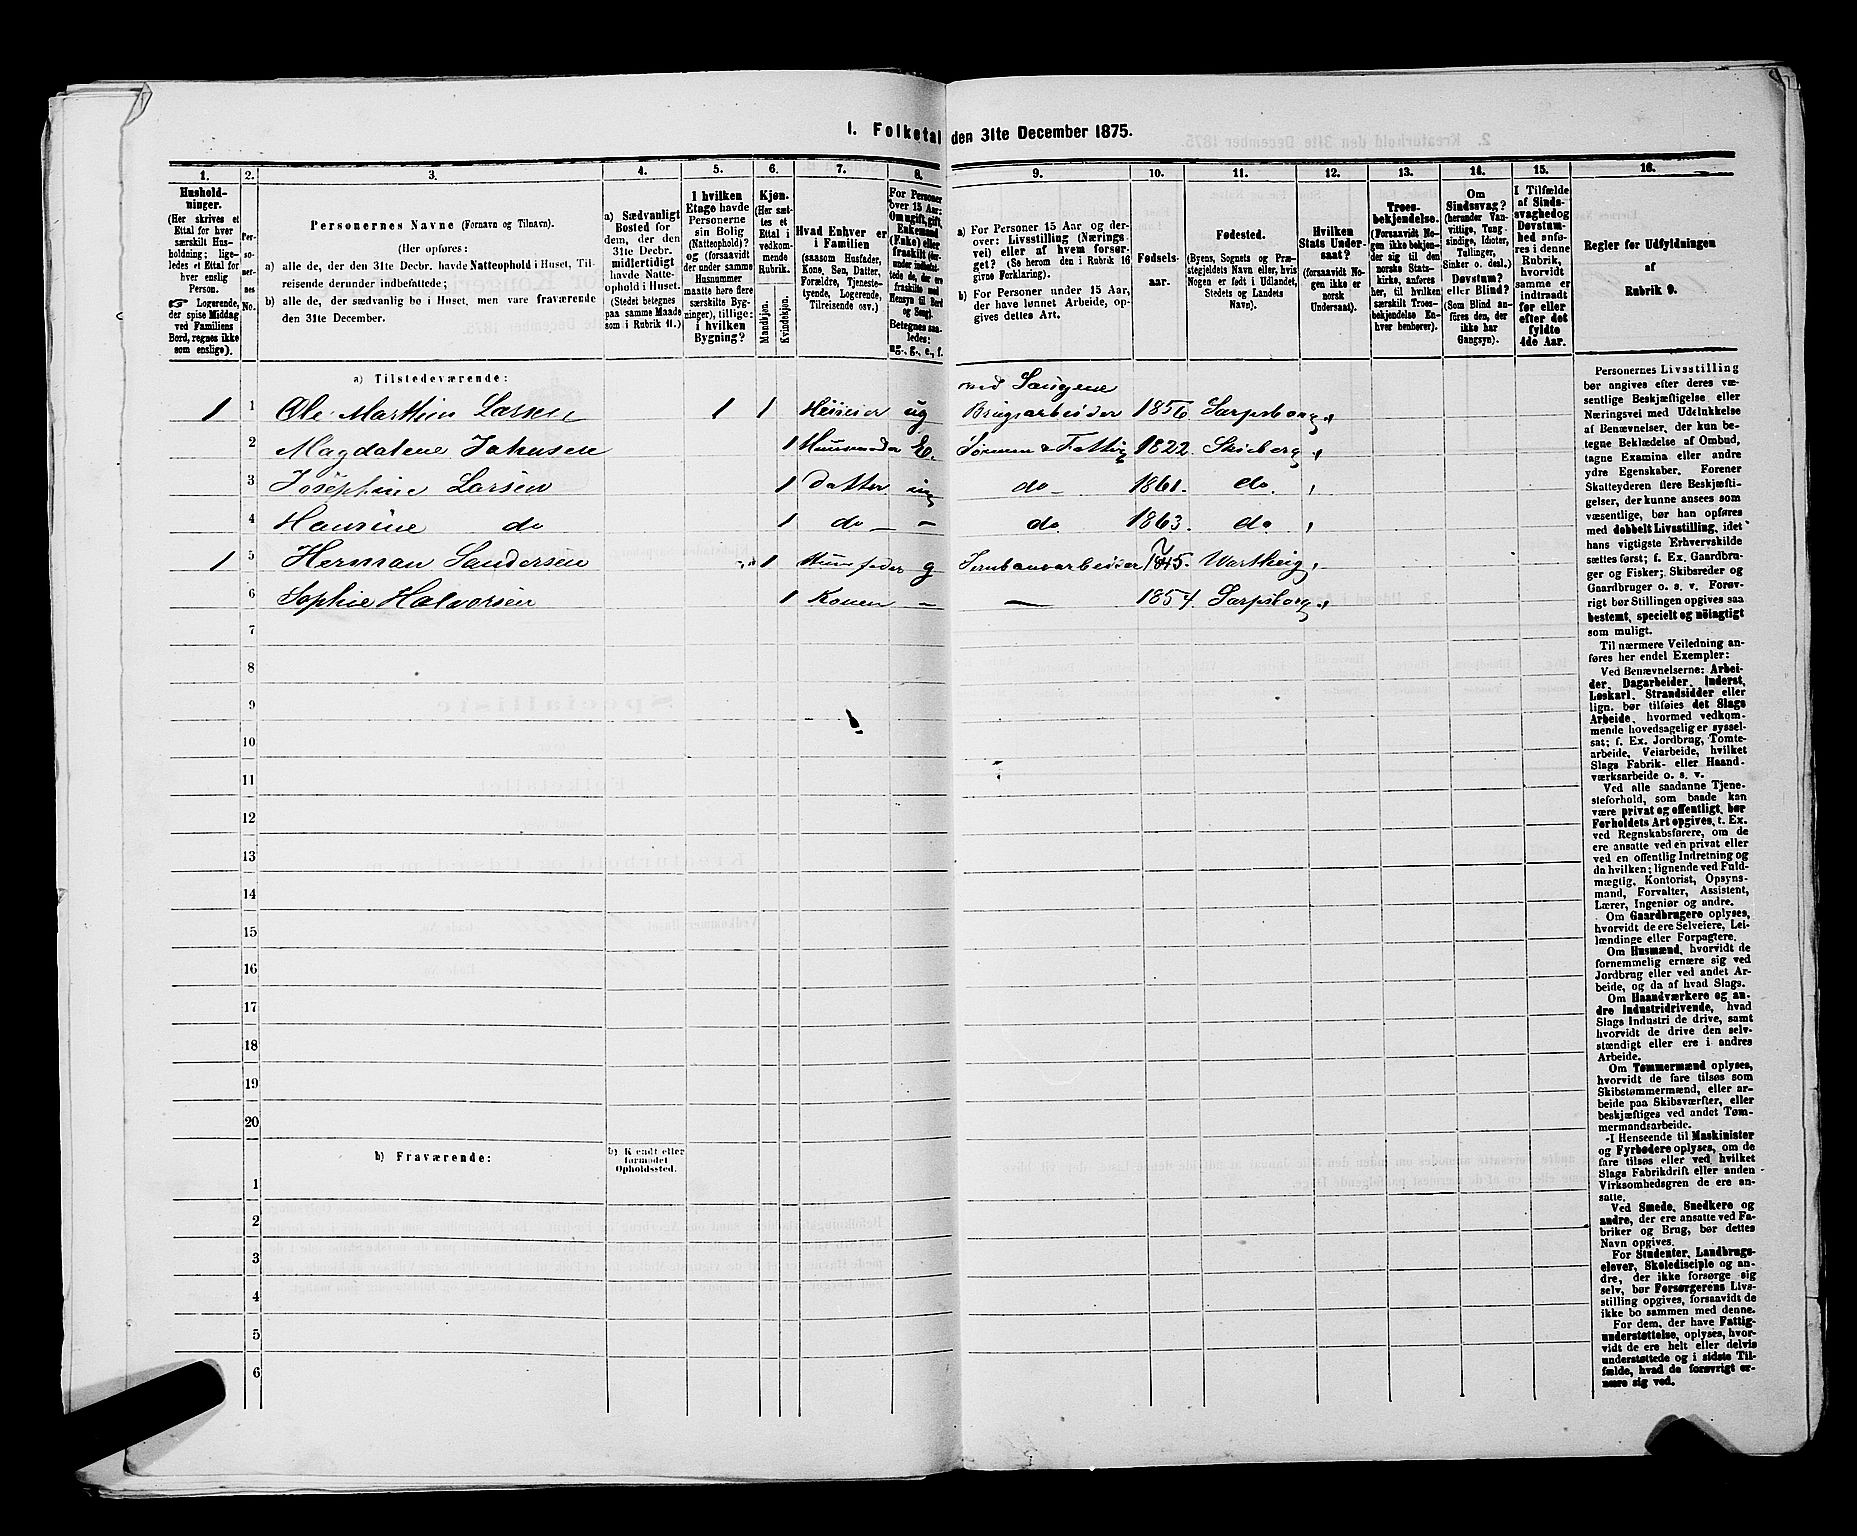 1. Folketal den 31te December 1875.
1. 2. 3. 4. 5. 6. 7. 8. 9. 10. 11. 12. 13. 14. 15. 16.
Hushold-
ninger.
(Her skrives et
Ettal for hver
særskilt Hus-
holdning; lige-
ledes et Ettal for
hver enslig
Person.
Logerende,
der spise Middag
ved Familiens
Bord, regnes ikke
som enslige).
Per-
so-
ner-
nes
No.
Personernes Navne (Fornavn og Tilnavn).
(Her opføres:
a) alle de, der den 31te Decbr. havde Natteophold i Huset, Til-
reisende derunder indbefattede;
b) alle de, der sædvanlig bo i Huset, men vare fraværende
den 31te December.
a) Sædvanligt
Bosted for
dem, der den
31te Decbr.
midlertidigt
havde Natte-
ophold i Huset.
(Stedet betegnes
paa samme Maade
som i Rubrik 11.)
I hvilken
Etage havde
Personerne
sin Bolig
(Natteophold)?
og (forsaavidt
der under samme
Husnummer
maatte høre flere
særskilte Byg-
ninger), tillige:
i hvilken
Bygning?
Kjøn.
(Her sæt-
tes et
Ettal i
vedkom-
mende
Rubrik.
Mandkjøn.
Kvindekjøn.
Hvad Enhver er
i Familien
(saasom Husfader,
Kone, Søn, Datter,
Forældre, Tjeneste-
tyende, Logerende,
Tilreisende osv.)
For Personer
over 15 Aar:
Om ugift, gift,
Enkemand
(Enke) eller
fraskilt
Betegnes saa-
ledes:
ug., g., e., f.
a) For Personer 15 Aar og der-
over: Livsstilling (Nærings-
vei) eller af hvem forsør-
get? (Se herom den i Rubrik 16
givne Forklaring).
b) For Personer under 15 Aar,
der have lønnet Arbeide, op-
gives dettes Art.
Fødsels-
aar.
Fødested.
(Byens, Sognets og Præ-
stegjeldets Navn eller, hvis
Nogen er født i Udlandet,
Stedets og Landets
Navn).
Hvilken
Stats Under-
saat?
(forsaavidt No-
gen ikke er
norsk
Undersaat).
Troes-
bekjendelse.
(Forsaavidt No-
gen ikke bekjen-
der sig til den
norske Stats-
kirke, anføres
her, til hvilken
særskilt Troes-
bekjendelse En-
hver henhører).
Om
Sindssvag?
(herunder Van-
vittige, Tung-
sindige, Idioter,
Tullinger,
Sinker o. desl.)
Døvstum?
eller Blind?
(Som Blind an-
føres den, der
ikke har
Gangsyn).
I Tilfælde
af Sinds-
svaghed og
Døvstum-
hed anfø-
res i denne
Rubrik,
hvorvidt
samme er
indtraadt
før eller
efter det
fyldte
4de Aar.
Regler for Udfyldningen
af
Rubrik 9.
a) Tilstedeværende:
ved Saugene
1 1 Ole Marthin Larsen 1 1 ug Brugsarbeider 1856 Sarpsborg
2 Magdalene Johnsen 1 Huusmoder E. Sønnen & Fattig 1822 Skieberg
3 Josephine Larsen 1 Datter ug do 1861. do.
4 Hansine do 1 do – – do 1863. do.
1 5 Herman Sandersen 1 Huusfader g Jernbanearbeider 1845.
6 Sophie Halvorsen 1 Konen – – 1854. Sarpsborg
7
8
9
10
11
12
13
14
15
16
17
18
19
20
b) Fraværende:
b) Kjendt eller
formodet
Opholdssted.
1
2
3
4
5
6
Personernes Livsstilling
bør angives efter deres væ-
sentlige Beskjæftigelse eller
Næringsvei med Udelukkelse
af Benævnelser, der kun be-
tegne Beklædelse af Ombud,
tagne Examina eller andre
ydre Egenskaber. Forener
Skatteyderen flere Beskjæfti-
gelser, der kunne ansees som
væsentlige, bør han opføres
med dobbelt Livsstilling, idet
hans vigtigste Erhvervskilde
sættes først; f. Ex. Gaardbru-
ger og Fisker; Skibsreder og
Gaardbruger o. s. v. Forøv-
rigt bør Stillingen opgives saa
bestemt, specielt og nöiagtigt
som muligt.
Til nærmere Veiledning an-
føres her endel Exempler:
Ved Benævnelserne: Arbei-
der, Dagarbeider, Inderst,
Løskarl, Strandsidder eller
lign. bør tilføies det Slags
Arbeide, hvormed vedkom-
mende hovedsagelig er syssel-
sat; f. Ex. Jordbrug, Tomte-
arbeide, Veiarbeide, hvilket
Slags Fabrik- eller Haand-
værksarbeide o. s. v.
Ved alle saadanne Tjene-
steforhold, som baade kan
være privat og offentligt, bør
Forholdets Art opgives, t. Ex.
ved Regnskabsførere, om de
ere ansatte ved en privat eller
ved en offentlig Indretning og
da hvilken; lignende ved Fuld-
mægtig, Kontorist, Opsyns-
mand, Forvalter, Assistent,
Lærer, Ingeniør og andre.
Om Gaardbrugere oplyses,
hvorvidt de ere Selveiere, Lei-
lændinge eller Forpagtere.
Om Husmænd, hvorvidt de
fornemmelig ernære sig ved
Jordbrug eller ved andet Ar-
beide, og da af hvad Slags.
Om Haandværkere og an-
dre Industridrivende, hvad
Slags Industri de drive, samt
hvorvidt de drive den selv-
stændigt eller ere i andres
Arbeide.
Om Tømmermænd oplyses,
hvorvidt de fare tilsøs som
Skibstømmermænd, eller ar-
beide paa Skibsværfter, eller
beskjæftiges ved andet Tøm-
mermandsarbeide.
I Henseende til Maskinister
og Fyrbødere oplyses, om de
fare tilsøs eller ved hvilket
Slags Fabrikdrift eller anden
Virksomhedsgren de ere an-
satte.
Ved Smede, Snedkere og
andre, der ere ansatte ved Fa-
briker og Brug, bør dettes
Navn opgives.
For Studenter, Landbrugs-
elever, Skoledisciple og an-
dre, der ikke forsørge sig
selv, bør Forsørgerens Livs-
stilling opgives, forsaavidt de
ikke bo sammen med denne.
For dem, der have Fattig-
understøttelse, oplyses, hvor-
vidt de ere helt eller delvis
understøttede og i sidste Til-
fælde, hvad de forøvrigt er-
nære sig ved.